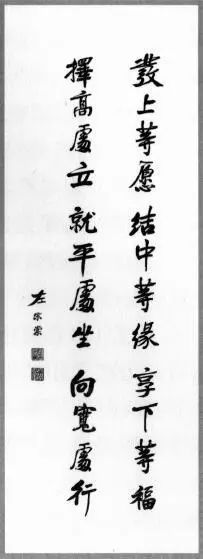 發上等愿结中等緣享下等福
擇高處立就平處坐向寬處行
左宗棠